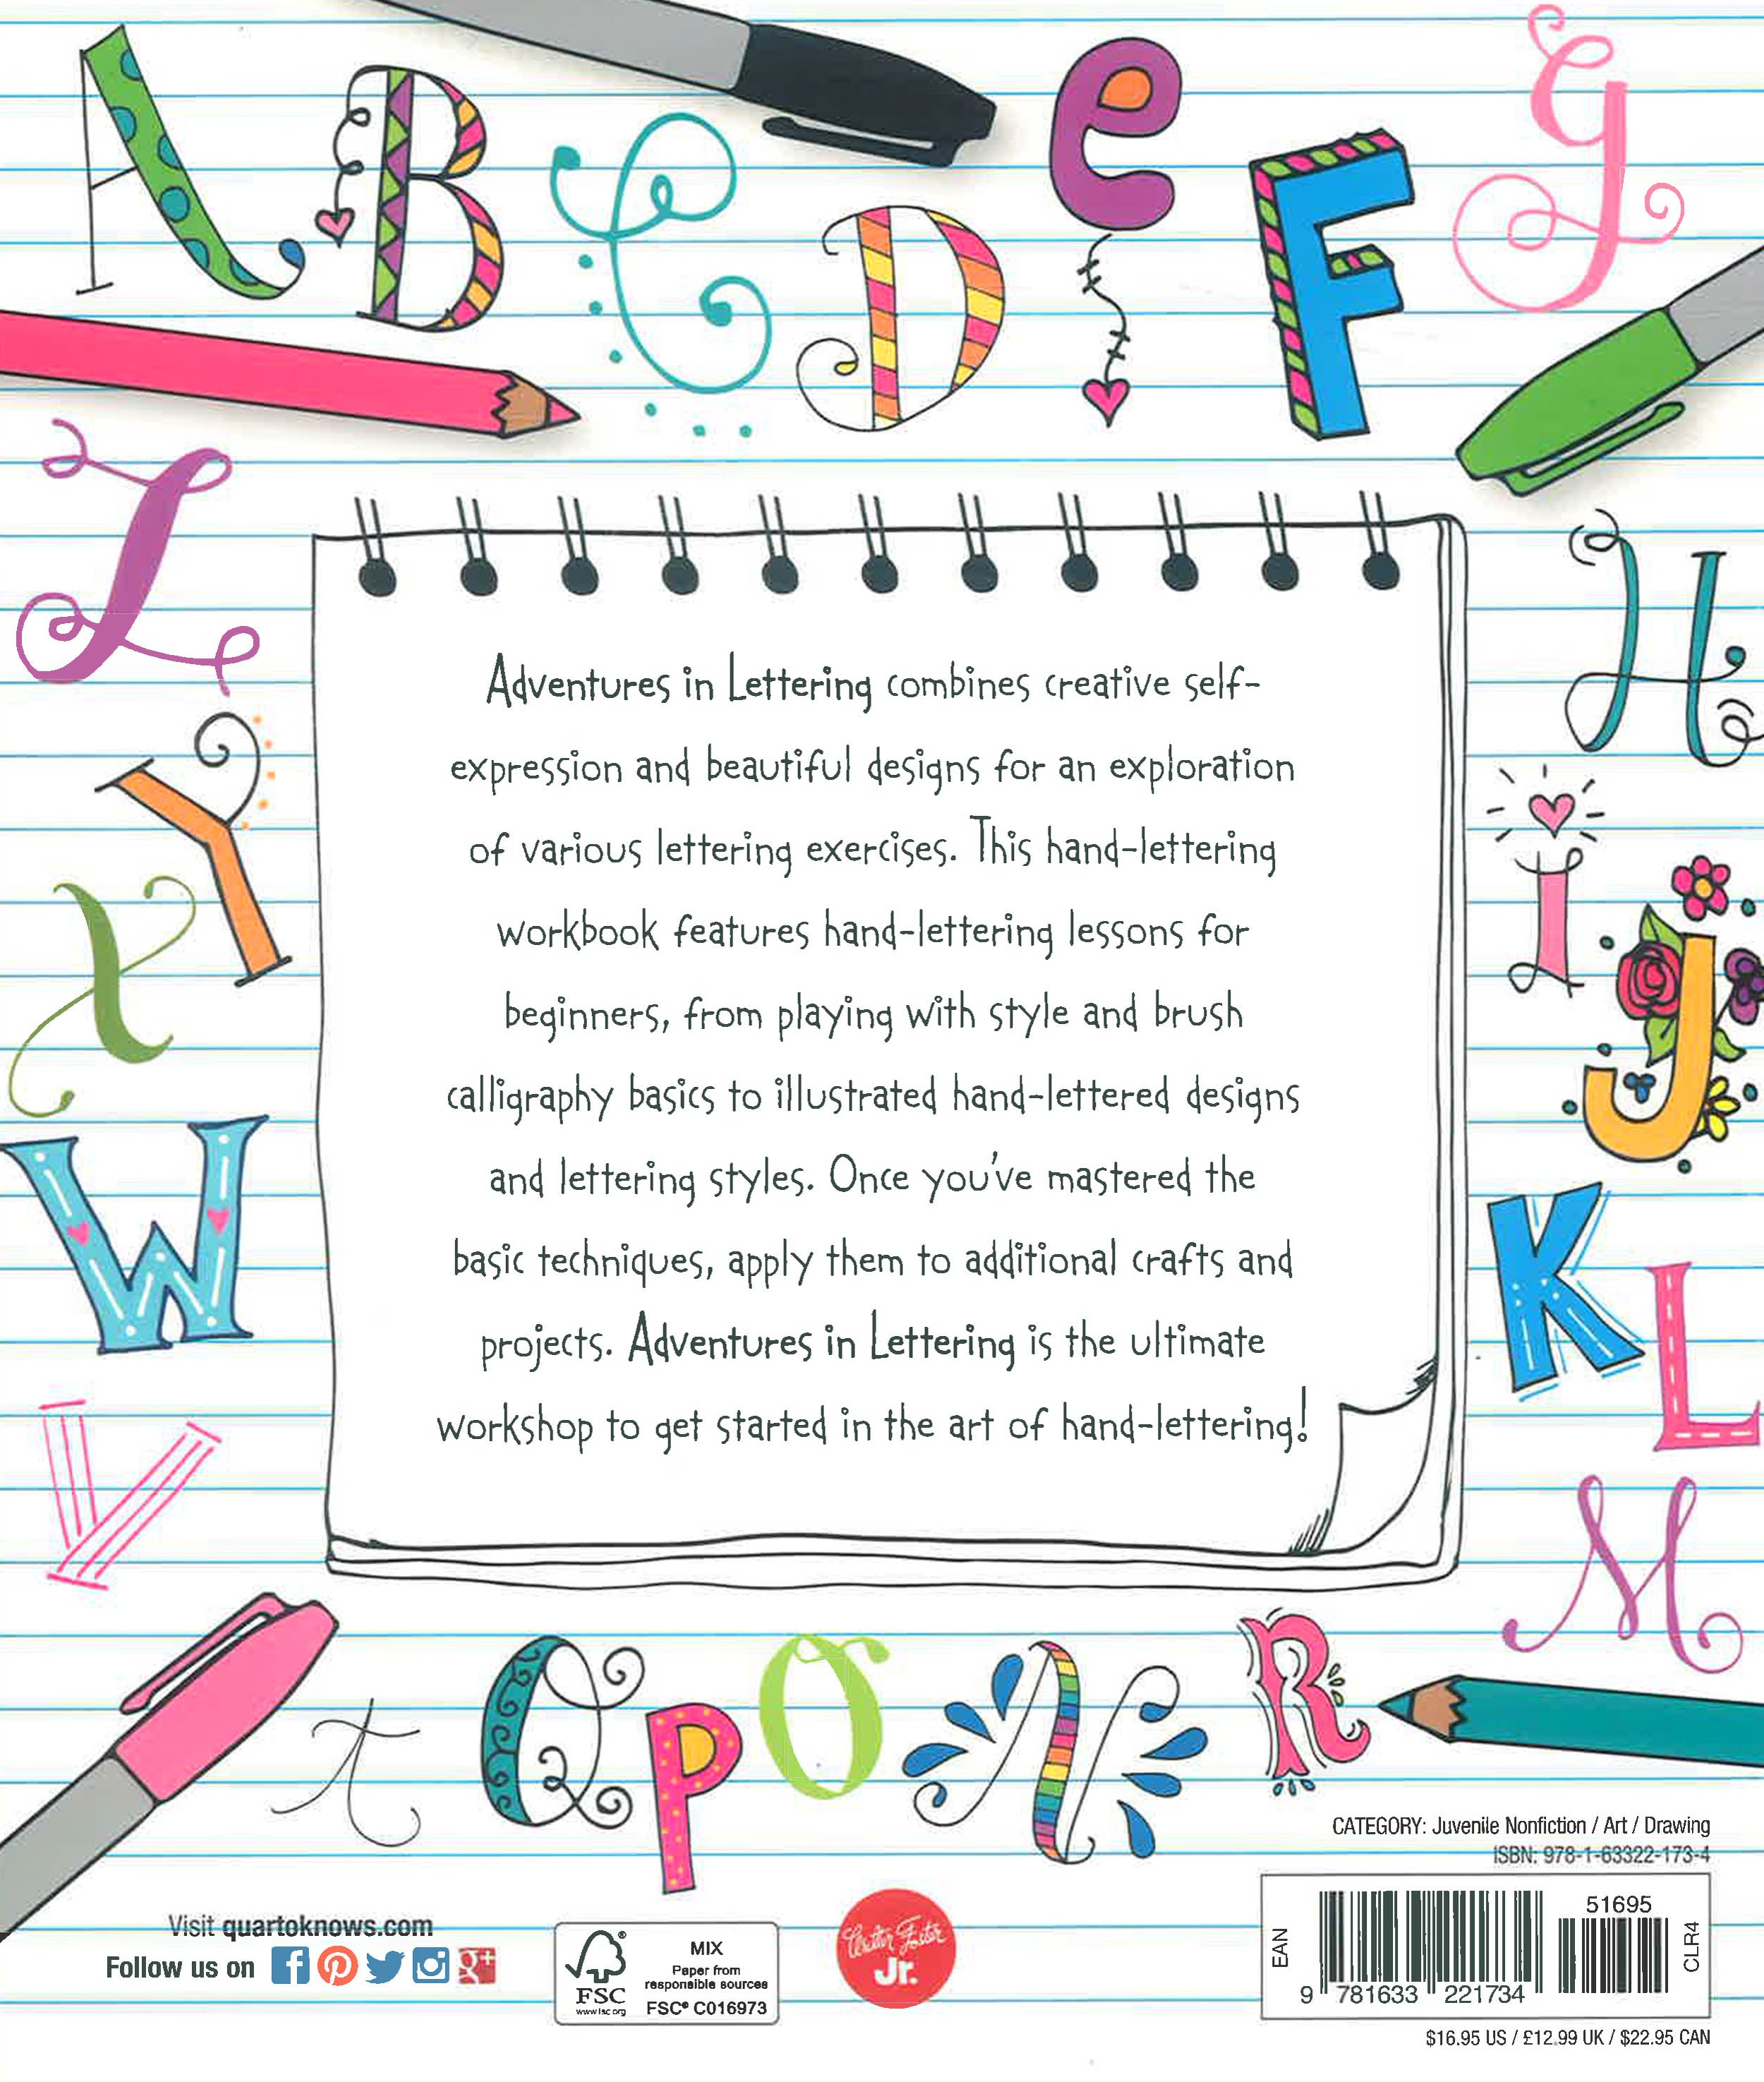 A B C D e F G
Z
H
Y
I
X
J
W
K
L
V
M
t Q P O N R
Adventures in Lettering combines creative self-
expression and beautiful designs for an exploration
of various lettering exercises. This hand-lettering
workbook features hand-lettering lessons for
beginners, from playing with style and brush
calligraphy basics to illustrated hand-lettered designs
and lettering styles. Once you've mastered the
basic techniques, apply them to additional crafts and
projects. Adventures in Lettering is the ultimate
workshop to get started in the art of hand-lettering!
CATEGORY: Juvenile Nonfiction / Art / Drawing
ISBN: 978-1-63322-173-4
Visit quartoknows.com
Follow us on
g+
FSC
www.fsc.org
MIX
Paper from
responsible sources
FSC® C016973
Walter Foster
Jr.
EAN
51695
CLR4
9 781633 221734
$16.95 US / £12.99 UK / $22.95 CAN